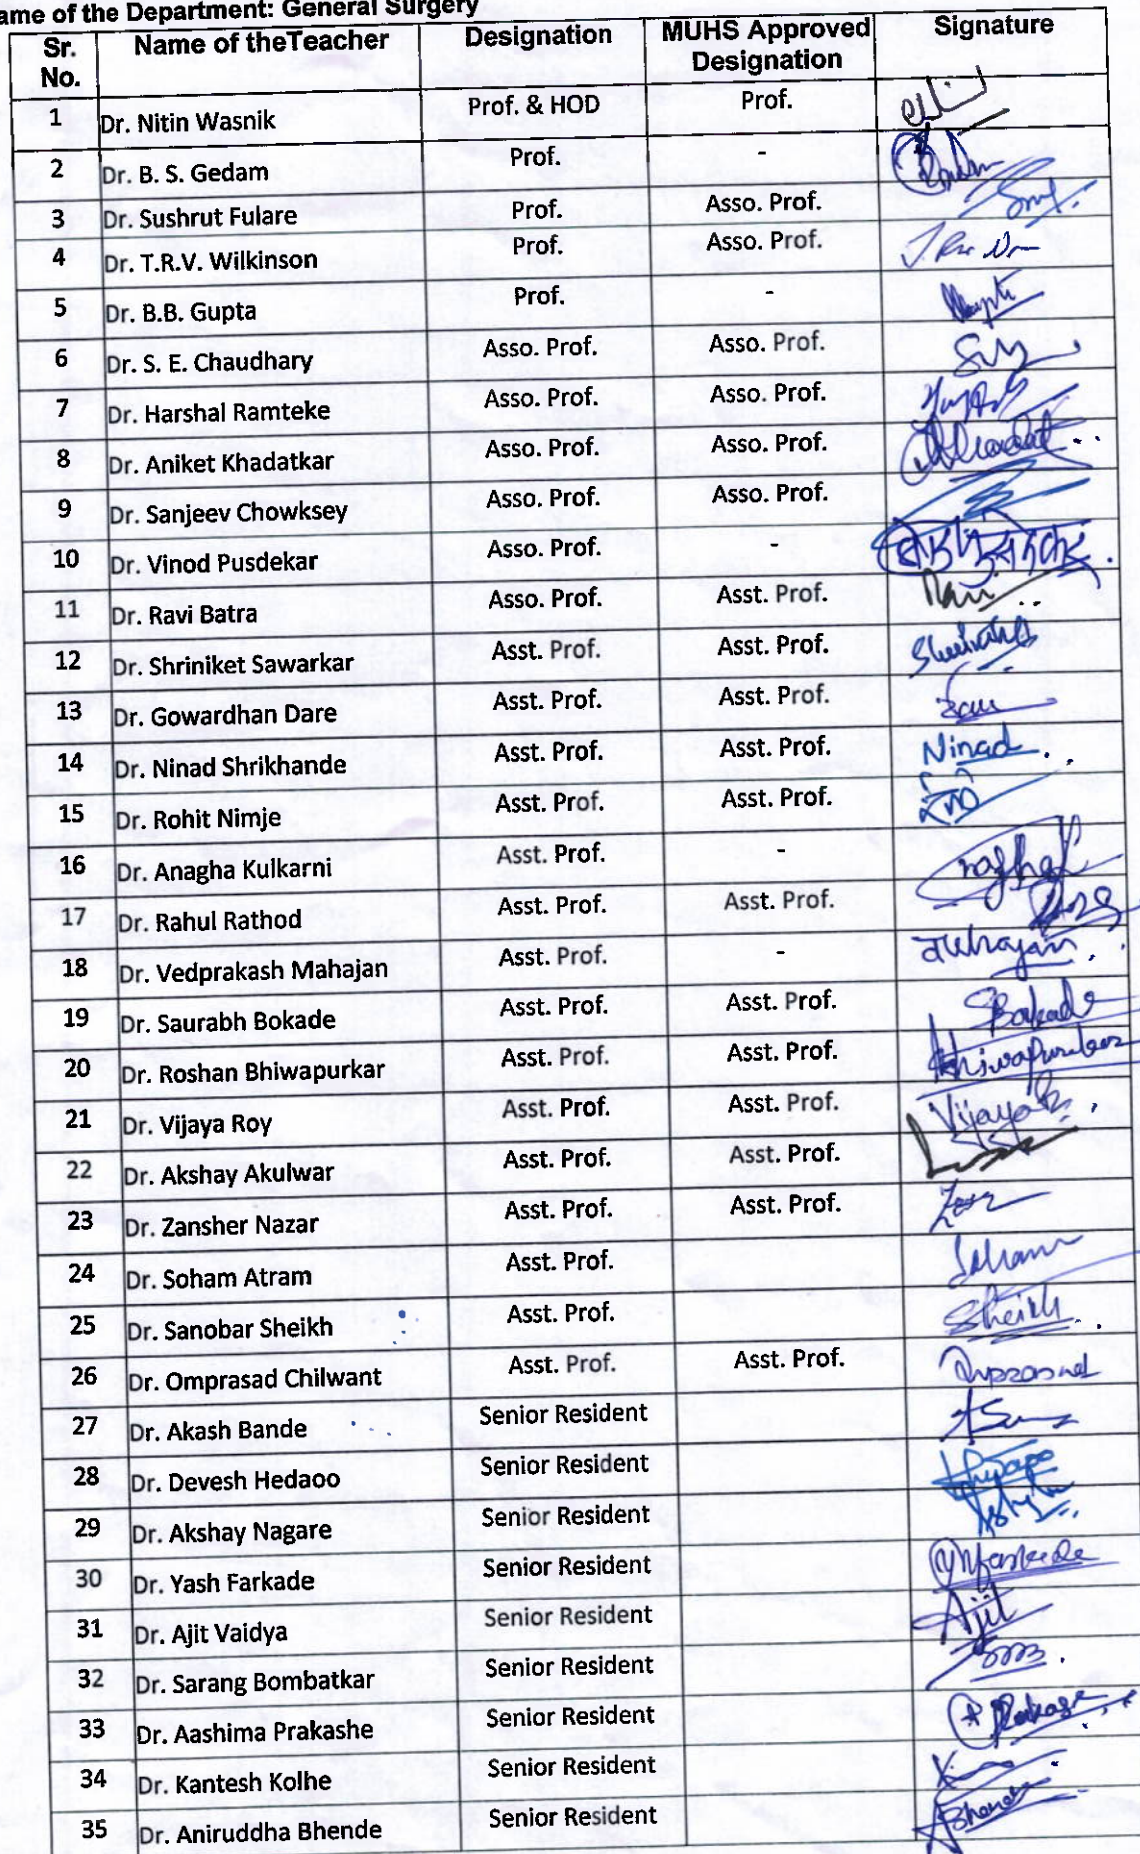 ame of the Department: General Surgery
Sr. No. Name of theTeacher Designation MUHS Approved Designation Signature
1 Dr. Nitin Wasnik Prof. & HOD Prof.
2 Dr. B. S. Gedam Prof. -
3 Dr. Sushrut Fulare Prof. Asso. Prof.
4 Dr. T.R.V. Wilkinson Prof. Asso. Prof.
5 Dr. B.B. Gupta Prof. -
6 Dr. S. E. Chaudhary Asso. Prof. Asso. Prof.
7 Dr. Harshal Ramteke Asso. Prof. Asso. Prof.
8 Dr. Aniket Khadatkar Asso. Prof. Asso. Prof.
9 Dr. Sanjeev Chowksey Asso. Prof. Asso. Prof.
10 Dr. Vinod Pusdekar Asso. Prof. -
11 Dr. Ravi Batra Asso. Prof. Asst. Prof.
12 Dr. Shriniket Sawarkar Asst. Prof. Asst. Prof.
13 Dr. Gowardhan Dare Asst. Prof. Asst. Prof.
14 Dr. Ninad Shrikhande Asst. Prof. Asst. Prof. Ninad
15 Dr. Rohit Nimje Asst. Prof. Asst. Prof.
16 Dr. Anagha Kulkarni Asst. Prof. -
17 Dr. Rahul Rathod Asst. Prof. Asst. Prof.
18 Dr. Vedprakash Mahajan Asst. Prof. -
19 Dr. Saurabh Bokade Asst. Prof. Asst. Prof. SBokade
20 Dr. Roshan Bhiwapurkar Asst. Prof. Asst. Prof.
21 Dr. Vijaya Roy Asst. Prof. Asst. Prof. Vijaya
22 Dr. Akshay Akulwar Asst. Prof. Asst. Prof.
23 Dr. Zansher Nazar Asst. Prof. Asst. Prof.
24 Dr. Soham Atram Asst. Prof. Soham
25 Dr. Sanobar Sheikh Asst. Prof. Sheikh
26 Dr. Omprasad Chilwant Asst. Prof. Asst. Prof. Omprasad
27 Dr. Akash Bande Senior Resident
28 Dr. Devesh Hedaoo Senior Resident
29 Dr. Akshay Nagare Senior Resident
30 Dr. Yash Farkade Senior Resident
31 Dr. Ajit Vaidya Senior Resident Ajit
32 Dr. Sarang Bombatkar Senior Resident
33 Dr. Aashima Prakashe Senior Resident
34 Dr. Kantesh Kolhe Senior Resident
35 Dr. Aniruddha Bhende Senior Resident